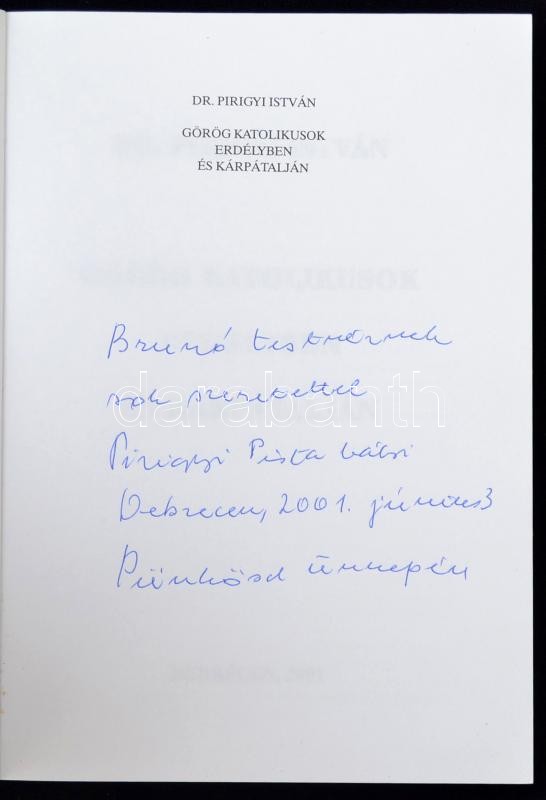 DR. PIRIGYI ISTVÁN
GÖRÖG KATOLIKUSOK
ERDÉLYBEN
ÉS KÁRPÁTALJÁN
Brunó testvérnek
sok szeretettel
darabanth
Pirigyi Pista bátyi
Debrecen, 2001. június 3
Pünkösd ünnepén